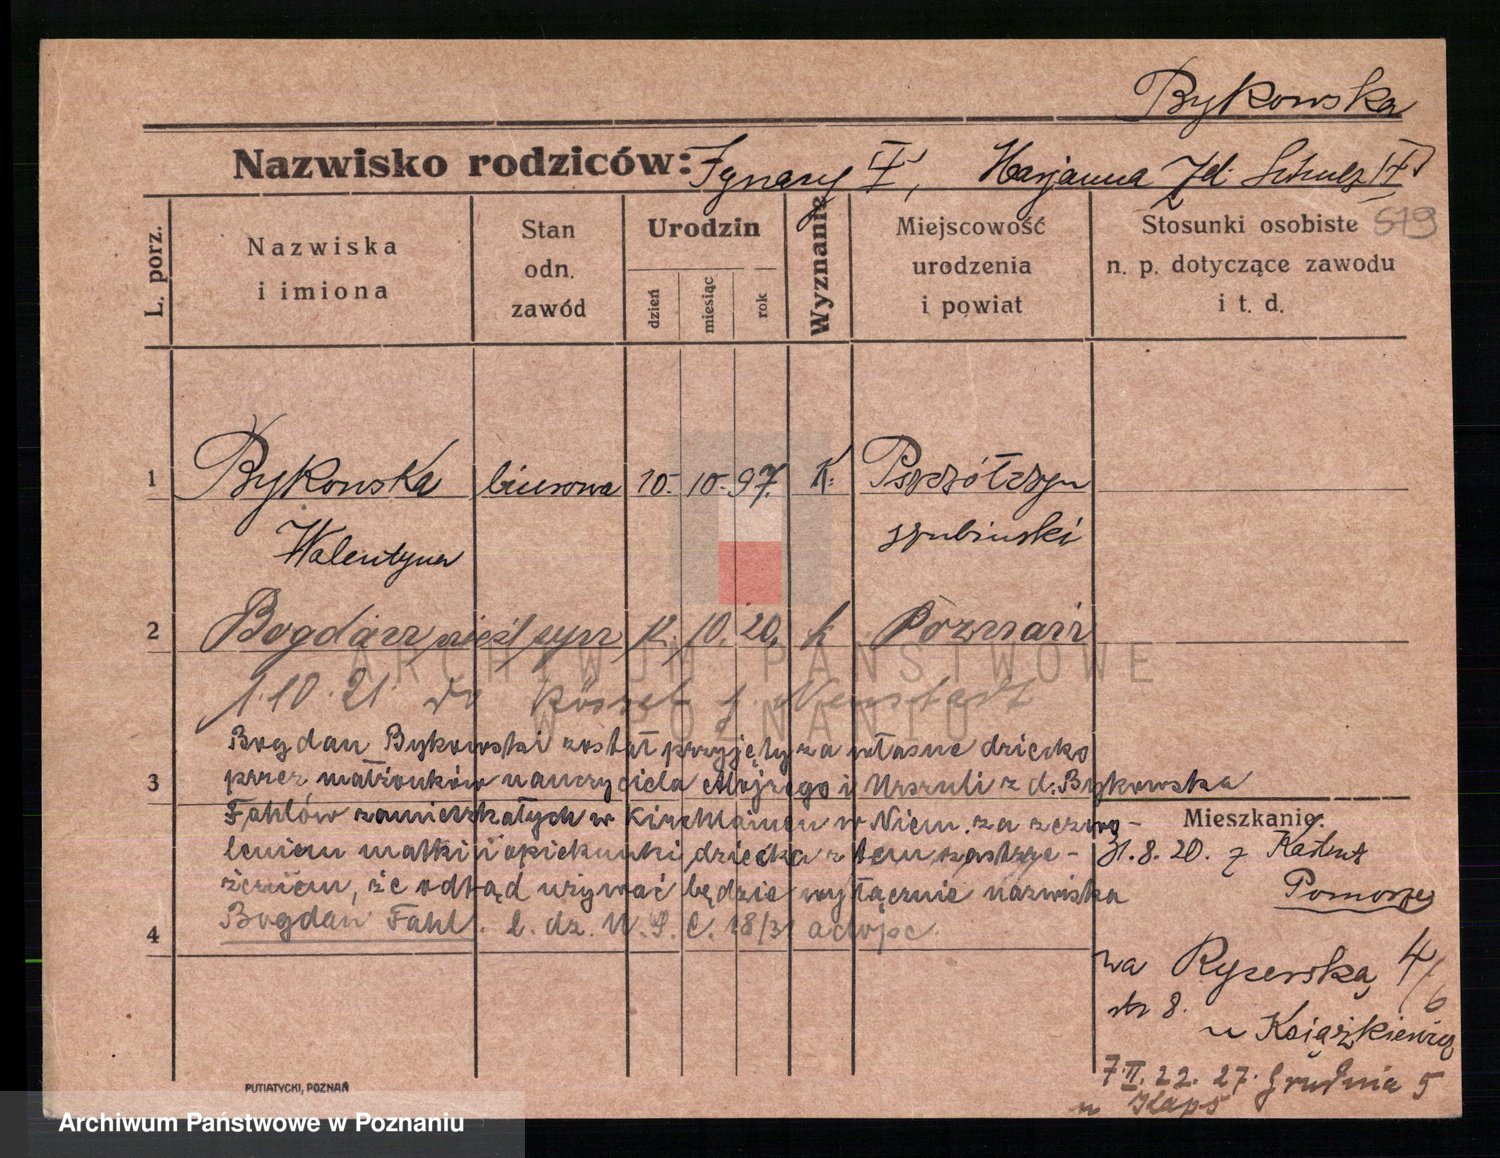 Bykowska
Nazwisko rodziców: Ignacy †, Marjanna zd. Schulz (†)
519
L. porz.
Nazwiska
i imiona
Stan
odn.
zawód
Urodzin
dzień
miesiąc
rok
Wyznanie
Miejscowość
urodzenia
i powiat
Stosunki osobiste
n. p. dotyczące zawodu
i t. d.
1 Bykowska biurowa 10. 10. 97. K.
Walentyna szubiński
2 Bogdan nieśl syn 12. 10. 20. k Poznań
1.10.21. Neustadt
Bogdan Bykowski został przyjęty za własne dziecko
3 przez małżonków nauczyciela Alojzego i Urszuli z d. Bykowska
Fahlów zamieszkałych w Kirchhainen w Niem. za zezwo-
leniem matki i opiekunki dziecka z tem zastrze-
żeniem, że odtąd używać będzie wyłącznie nazwiska
4 Bogdan Fahl. l. dz. U. S. C. 18/31 adopc.
Mieszkanie:
31.8.20. z
Pomorze
na Ryserską 4/6
str 8.
u Książkiewicz
7.II.22. 27 Grudnia 5
u
PUTIATYCKI, POZNAŃ
ARCHIWUM PAŃSTWOWE
W POZNANIU
Archiwum Państwowe w Poznaniu